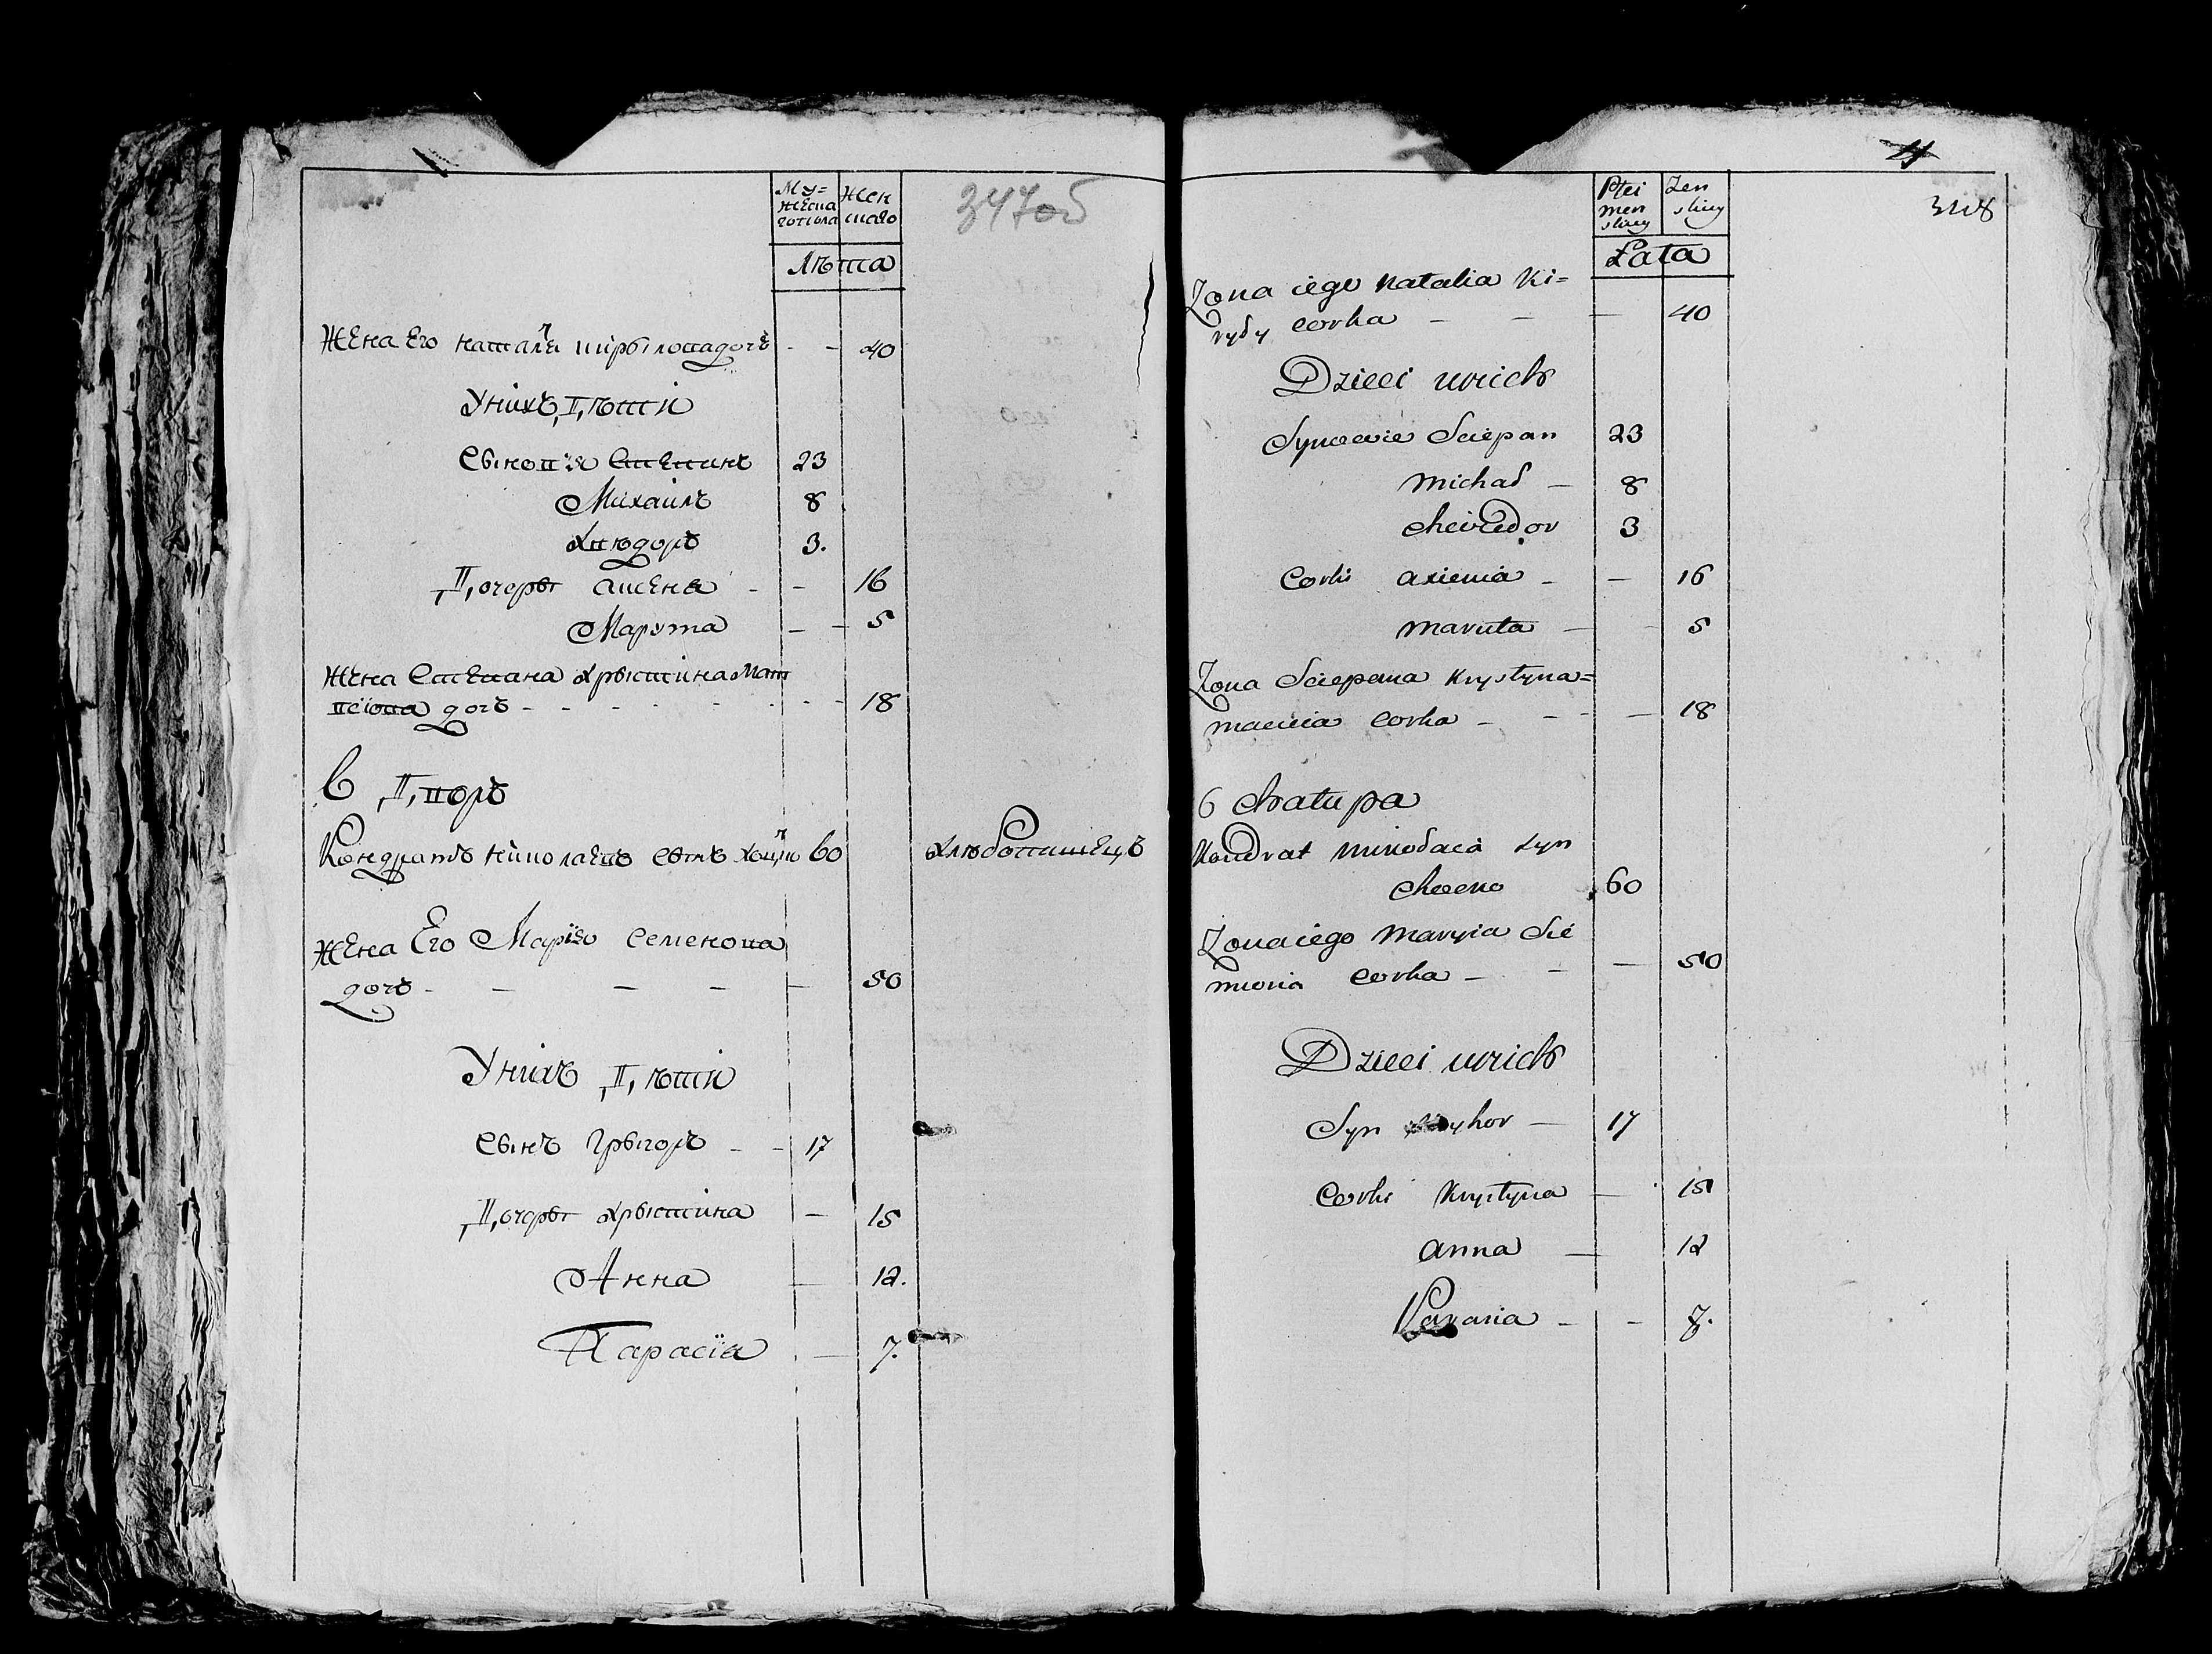 Му=
жеска
гопола
Жен
скаго
Лѣта
347об
Жена Его наталя кирыловадочъ - - 40
Унихъ дѣти
Сыновѣя Степанъ 23
Михаилъ 8
Хведоръ 3.
дочеры аксеня - - 16
Марута - - 5
Жена Степана Хрыстина Мат
веіова дочъ - - - - - - 18
6 дворъ
Кондратъ николаевъ сынъ 60
Хлѣбопашецъ
Жена Его Марія семенова
дочъ - - - - - 50
Унихъ дѣти
Сынъ Грыгоръ - - 17
дочеры Хрыстина - 15
Анна - 12.
Парасія - 7.
Płci
men
skiey
Zen
skiey
Łata
348
Zona iego Natalia Ki=
ryły corka - - - 40
Dzieci unich
Synowie Sciepan 23
Michał - 8
Chwiedor 3
Corki axienia - - 16
Maruta - - 5
Zona Sciepana Krystyna=
macieia corka - - - - 18
6 Chałupa
Kondrat mikołaia Syn
60
Zona iego Maryia Sie
miona corka - - - 50
Dzieci unich
Syn - 17
Corki Krystyna - 15
anna - 12
Parasia - - 7.